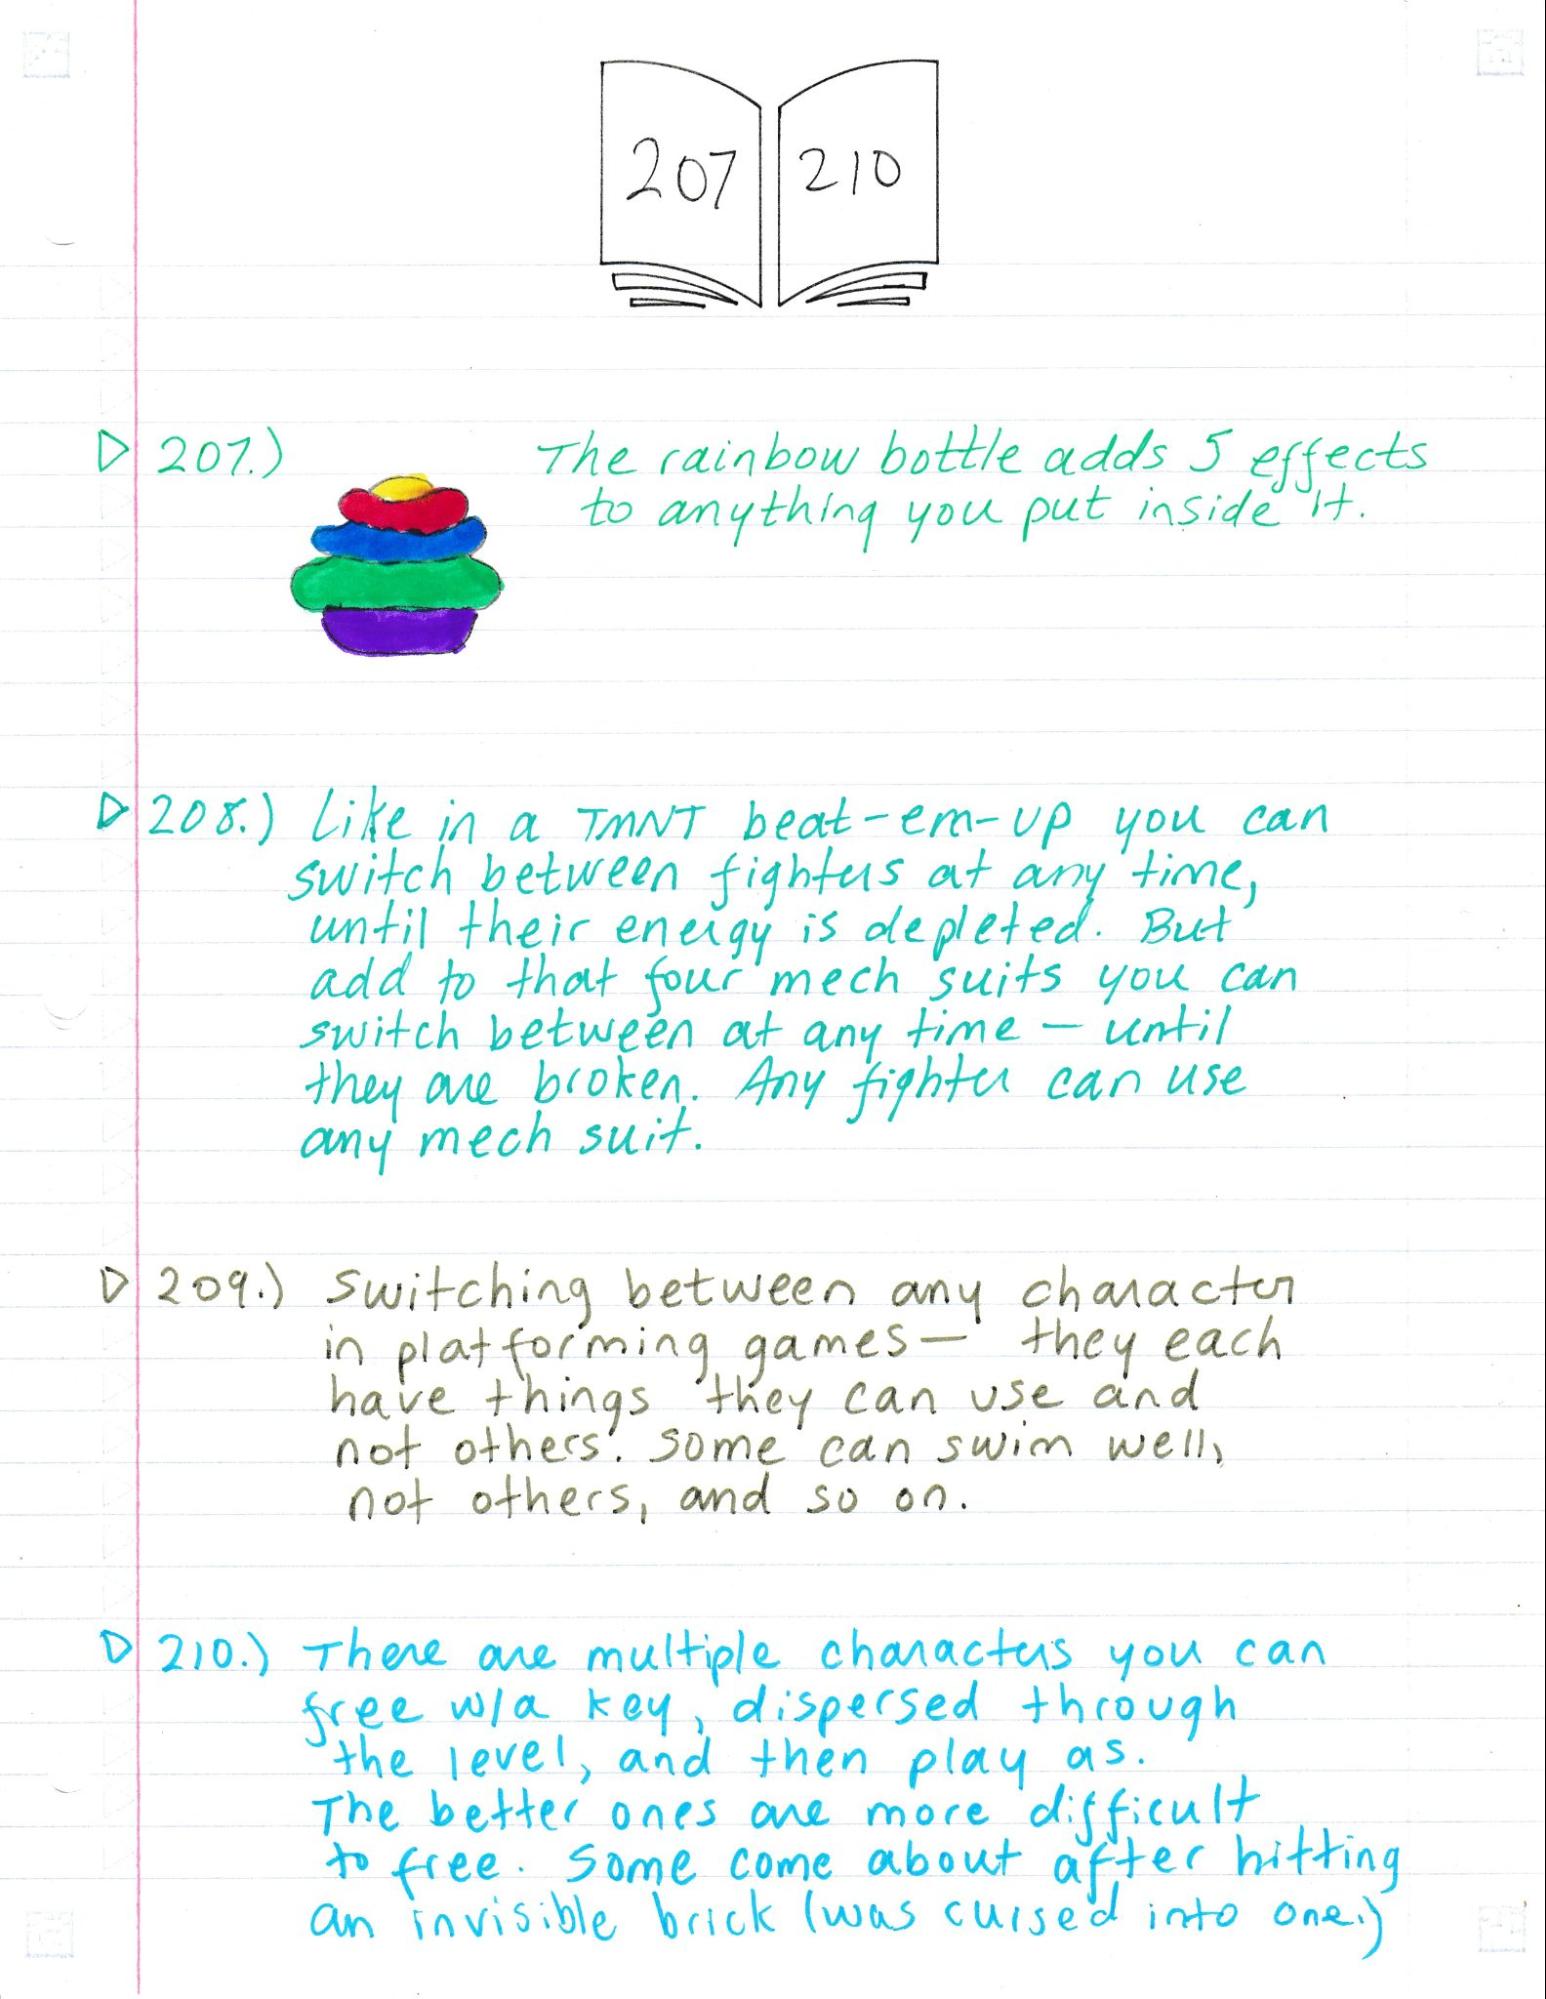 207 210
207.) The rainbow bottle adds 5 effects
to anything you put inside it.
208.) Like in a TMNT beat-em-up you can
switch between fighters at any time,
until their energy is depleted. But
add to that four mech suits you can
switch between at any time — until
they are broken. Any fighter can use
any mech suit.
209.) Switching between any character
in platforming games — they each
have things they can use and
not others. Some can swim well,
not others, and so on.
210.) There are multiple characters you can
free w/a key, dispersed through
the level, and then play as.
The better ones are more difficult
to free. Some come about after hitting
an invisible brick (was cursed into one.)